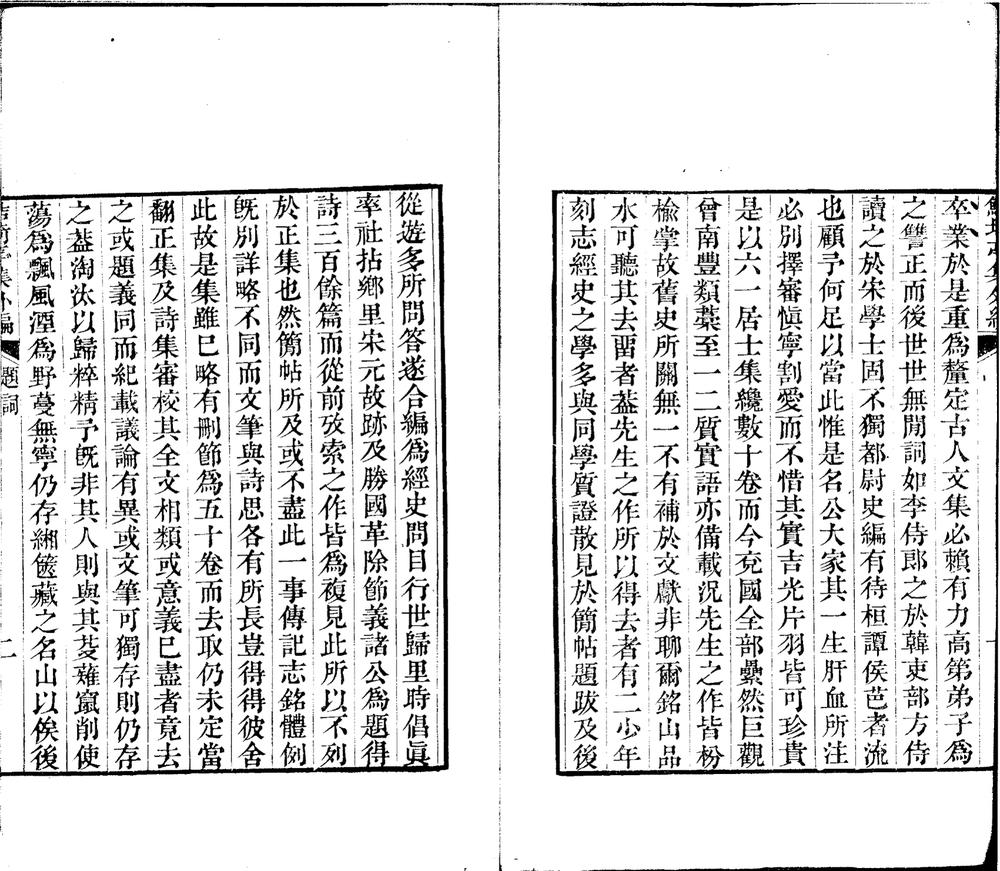 卒業於是重為釐定古人文集必賴有力高第弟子為
之讐正而後世世無閒詞如李侍郎之於韓吏部方侍
讀之於宋學士固不獨都尉史編有待桓譚侯芭者流
也顧予何足以當此惟是名公大家其一生肝血所注
必別擇審愼寧割愛而不惜其實吉光片羽皆可珍貴
是以六一居士集纔數十卷而今兗國全部纍然巨觀
曾南豐類藁至一二質實語亦備載況先生之作皆枌
榆掌故舊史所關無一不有補於文獻非聊爾銘山品
水可聽其去畱者葢先生之作所以得去者有二少年
刻志經史之學多與同學質證散見於簡帖題跋及後
從遊多所問答遂合編為經史問目行世歸里時倡眞
率社拈鄉里宋元故跡及勝國革除節義諸公為題得
詩三百餘篇而從前攷索之作皆為複見此所以不列
於正集也然簡帖所及或不盡此一事傳記志銘體例
旣別詳略不同而文筆與詩思各有所長豈得得彼舍
此故是集雖巳略有刪節為五十卷而去取仍未定當
翻正集及詩集審校其全文相類或意義巳盡者竟去
之或題義同而紀載議論有異或文筆可獨存則仍存
之葢淘汰以歸粹精予旣非其人則與其芟薙竄削使
蕩為飄風湮為野蔓無寧仍存緗篋藏之名山以俟後
題詞
二